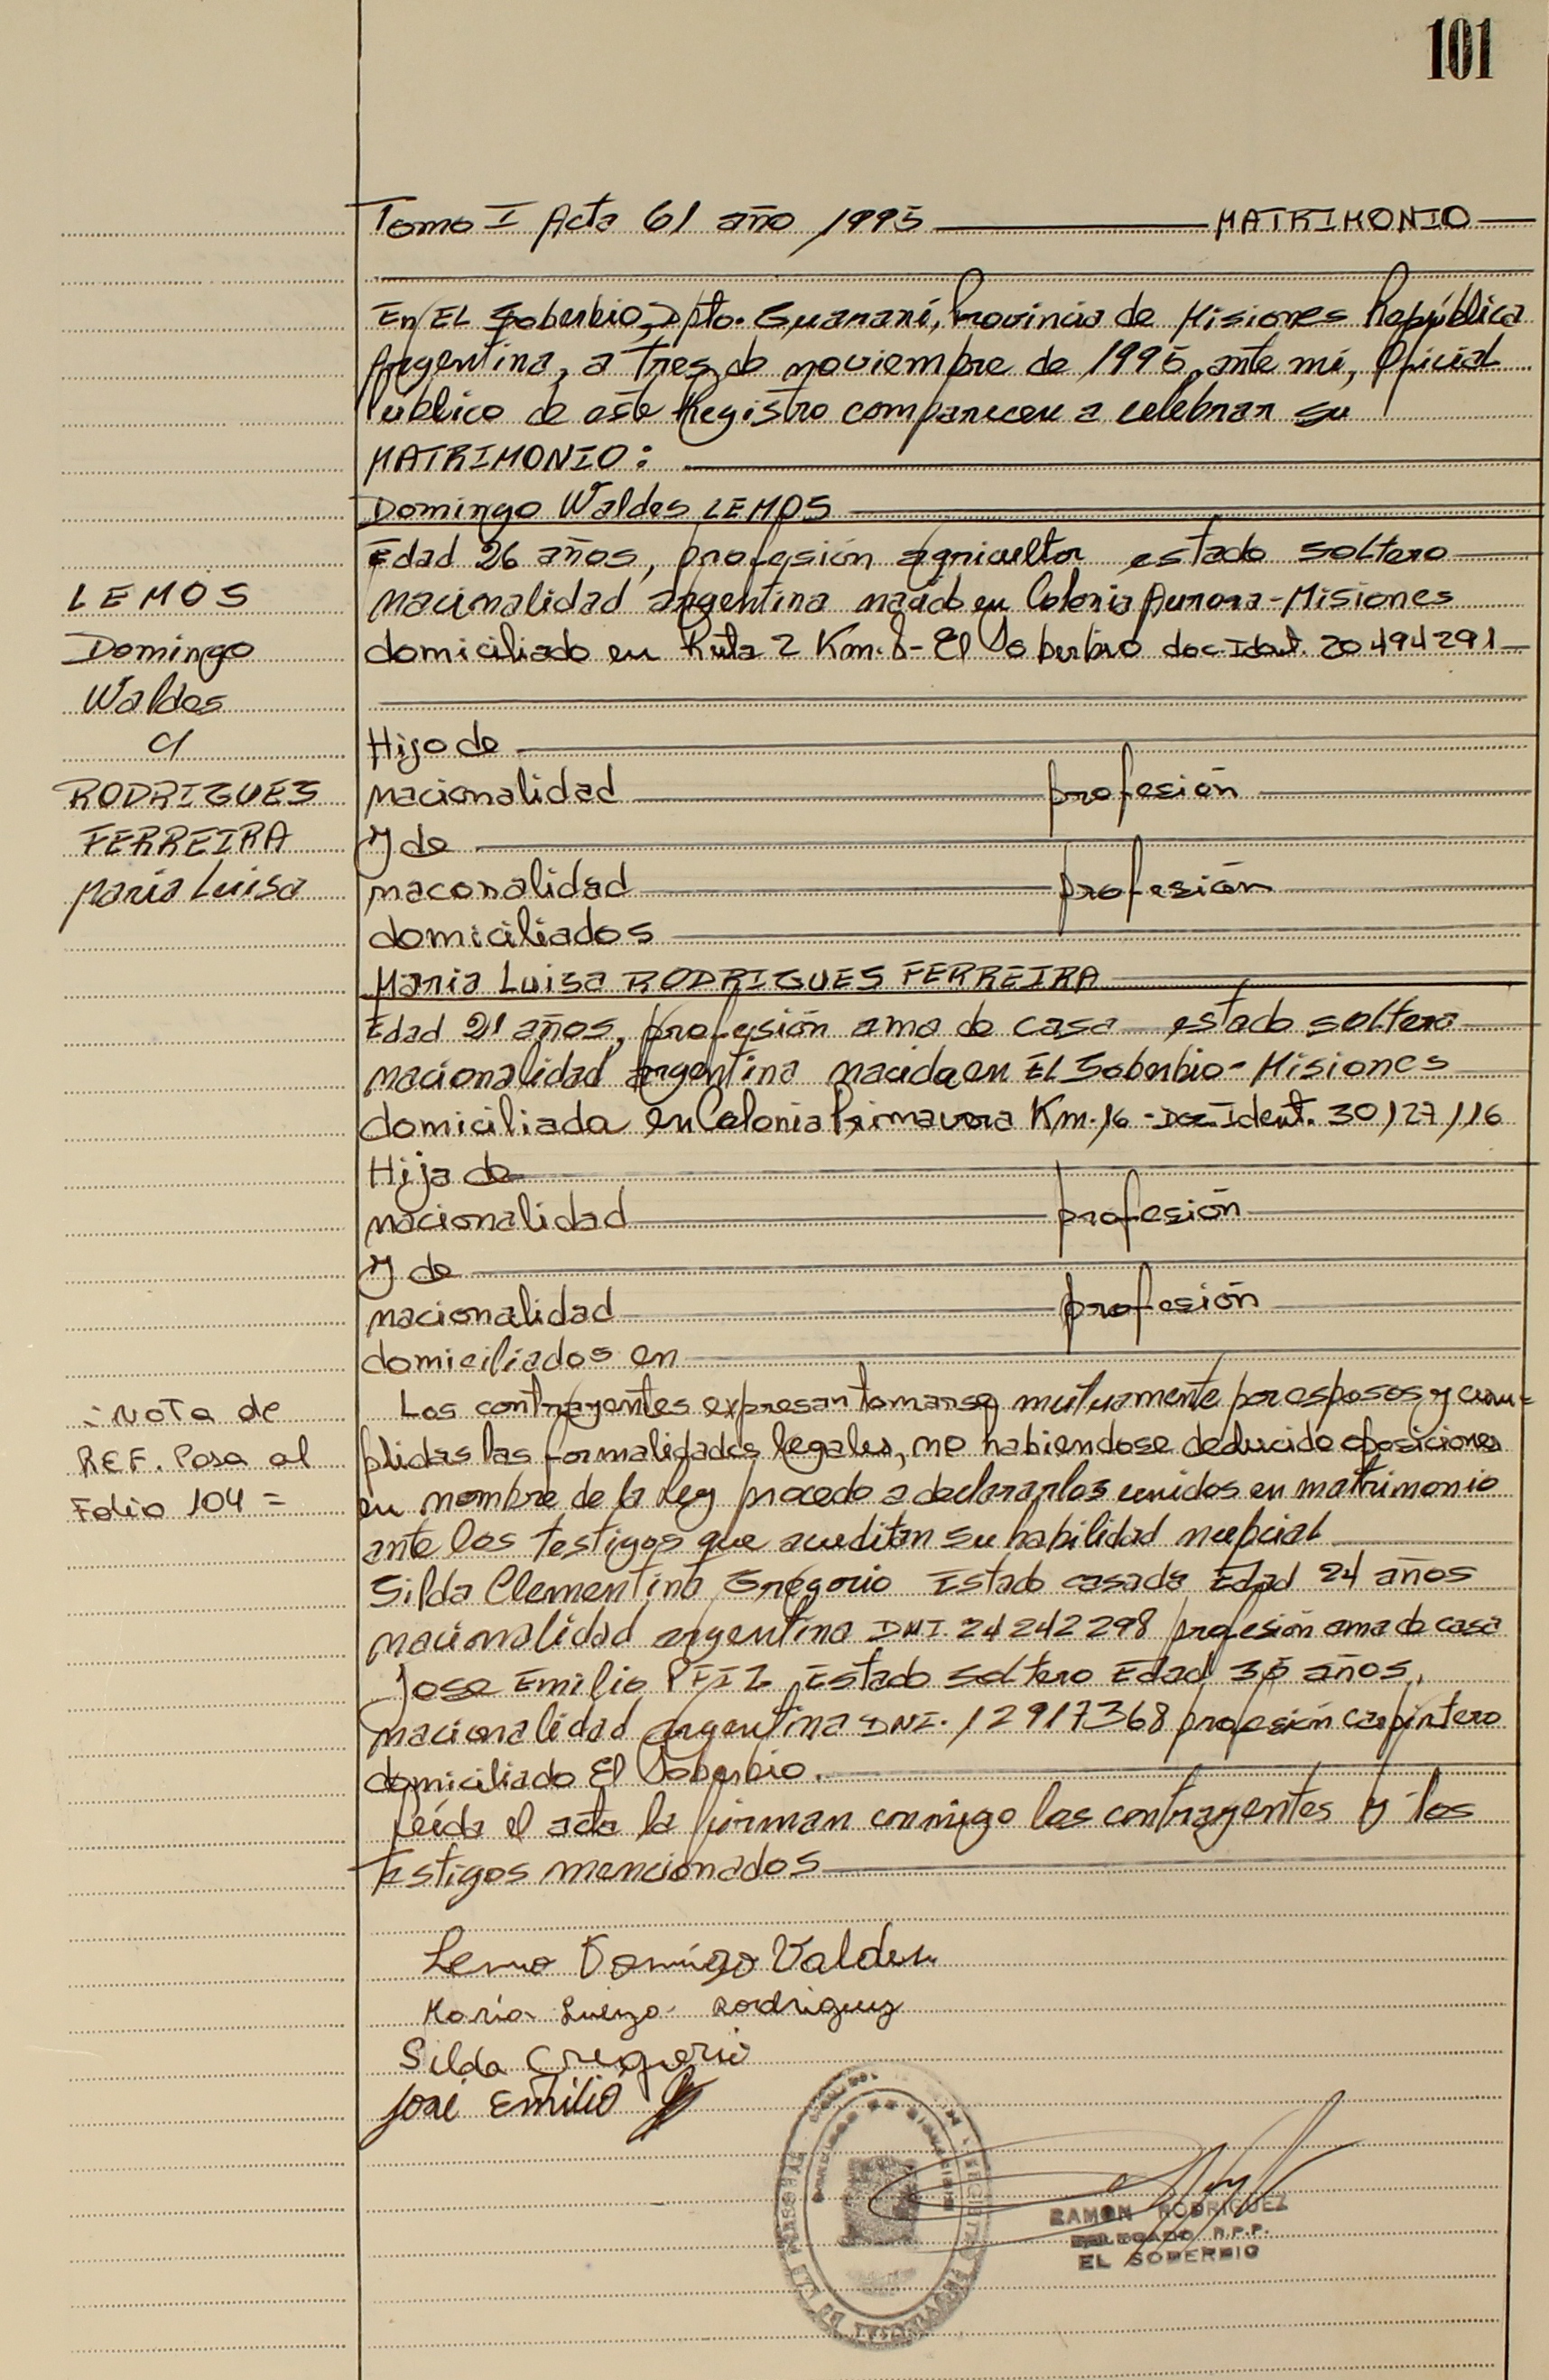 101
Tomo I Acta 61 año 1995 MATRIMONIO
En EL Soberbio, Dpto. Guaraní, Provincia de Misiones República
Argentina, a tres de noviembre de 1995, ante mi, Oficial
Público de este Registro comparecen a celebrar su
MATRIMONIO:
Domingo Waldes LEMOS
Edad 26 años, profesión agricultor estado soltero
nacionalidad argentina nacido en Colonia Aurora - Misiones
domiciliado en Ruta 2 Km. 8 - El Soberbio doc Ident. 20494291
Hijo de
nacionalidad profesión
y de
naconalidad profesión
domiciliados
Maria Luisa RODRIGUES FERREIRA
Edad 21 años, profesión ama de casa estado soltera
nacionalidad argentina nacida en EL Soberbio - Misiones
domiciliada en Colonia Primavera Km. 16 - Doc Ident. 30127116
Hija de
nacionalidad profesión
y de
nacionalidad profesión
domiciliados en
Los contrayentes expresan tomarse mutuamente por esposos, y cum-
plidas las formalidades legales, no habiendose deducido oposiciones
en nombre de la Ley procedo a declararlos unidos en matrimonio
ante los testigos que acreditan su habilidad nupcial
Silda Clementina Gregorio Estado casada Edad 24 años
nacionalidad argentina DNI. 24242298 profesión ama de casa
Jose Emilio Estado soltero Edad 35 años,
nacionalidad argentina DNI. 12917368 profesión carpintero
domiciliado El Soberbio.
Leída el acta la firman conmigo los contrayentes y los
testigos mencionados
LEMOS
Domingo
Waldes
c/
RODRIGUES
FERREIRA
Maria Luisa
: Nota de
REF. Pasa al
Folio 104 =
Lemo Domingo Valdes
María Luiza Rodriguez
Silda Gregorio
José Emilio
RAMON RODRIGUEZ
DELEGADO R.P.P.
EL SOBERBIO